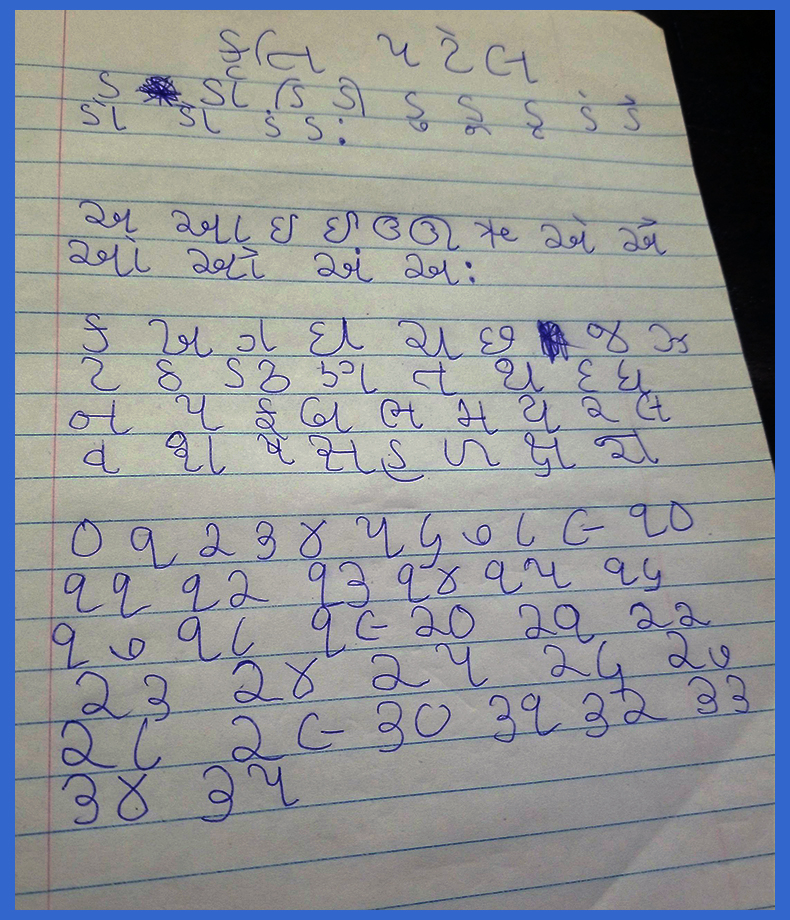 કૃતિ પટેલ
ક કા કિ કી કુ કૂ કૃ કે કૈ
કો કૌ કં કઃ
અ આ ઇ ઈ ઉ ઊ ઋ એ ઐ
ઓ ઔ અં અઃ
ક ખ ગ ઘ ચ છ જ ઝ
ટ ઠ ડ ઢ ણ ત થ દ ધ
ન પ ફ બ ભ મ ય ર લ
વ શ ષ સ હ ળ ક્ષ જ્ઞ
૦ ૧ ૨ ૩ ૪ ૫ ૬ ૭ ૮ ૯ ૧૦
૧૧ ૧૨ ૧૩ ૧૪ ૧૫ ૧૬
૧૭ ૧૮ ૧૯ ૨૦ ૨૧ ૨૨
૨૩ ૨૪ ૨૫ ૨૬ ૨૭
૨૮ ૨૯ ૩૦ ૩૧ ૩૨ ૩૩
૩૪ ૩૫